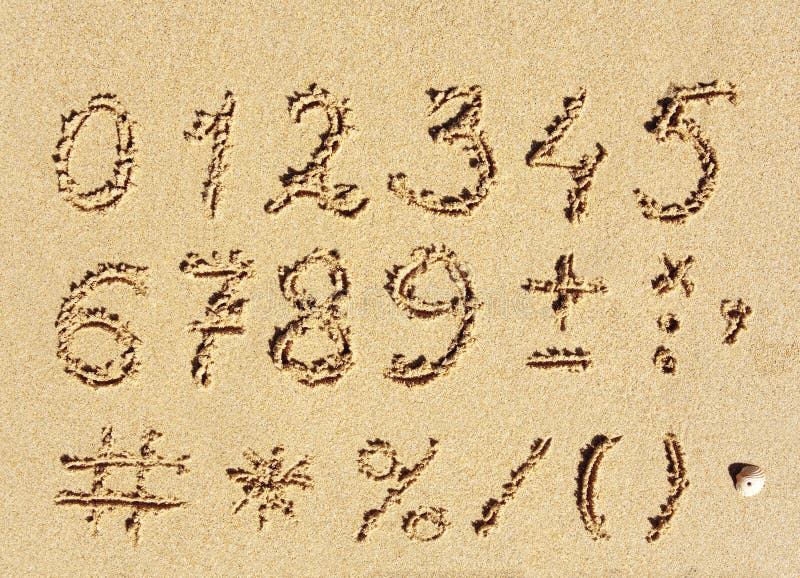 0 1 2 3 4 5
6 7 8 9 ± × : ,
# * % / ( )